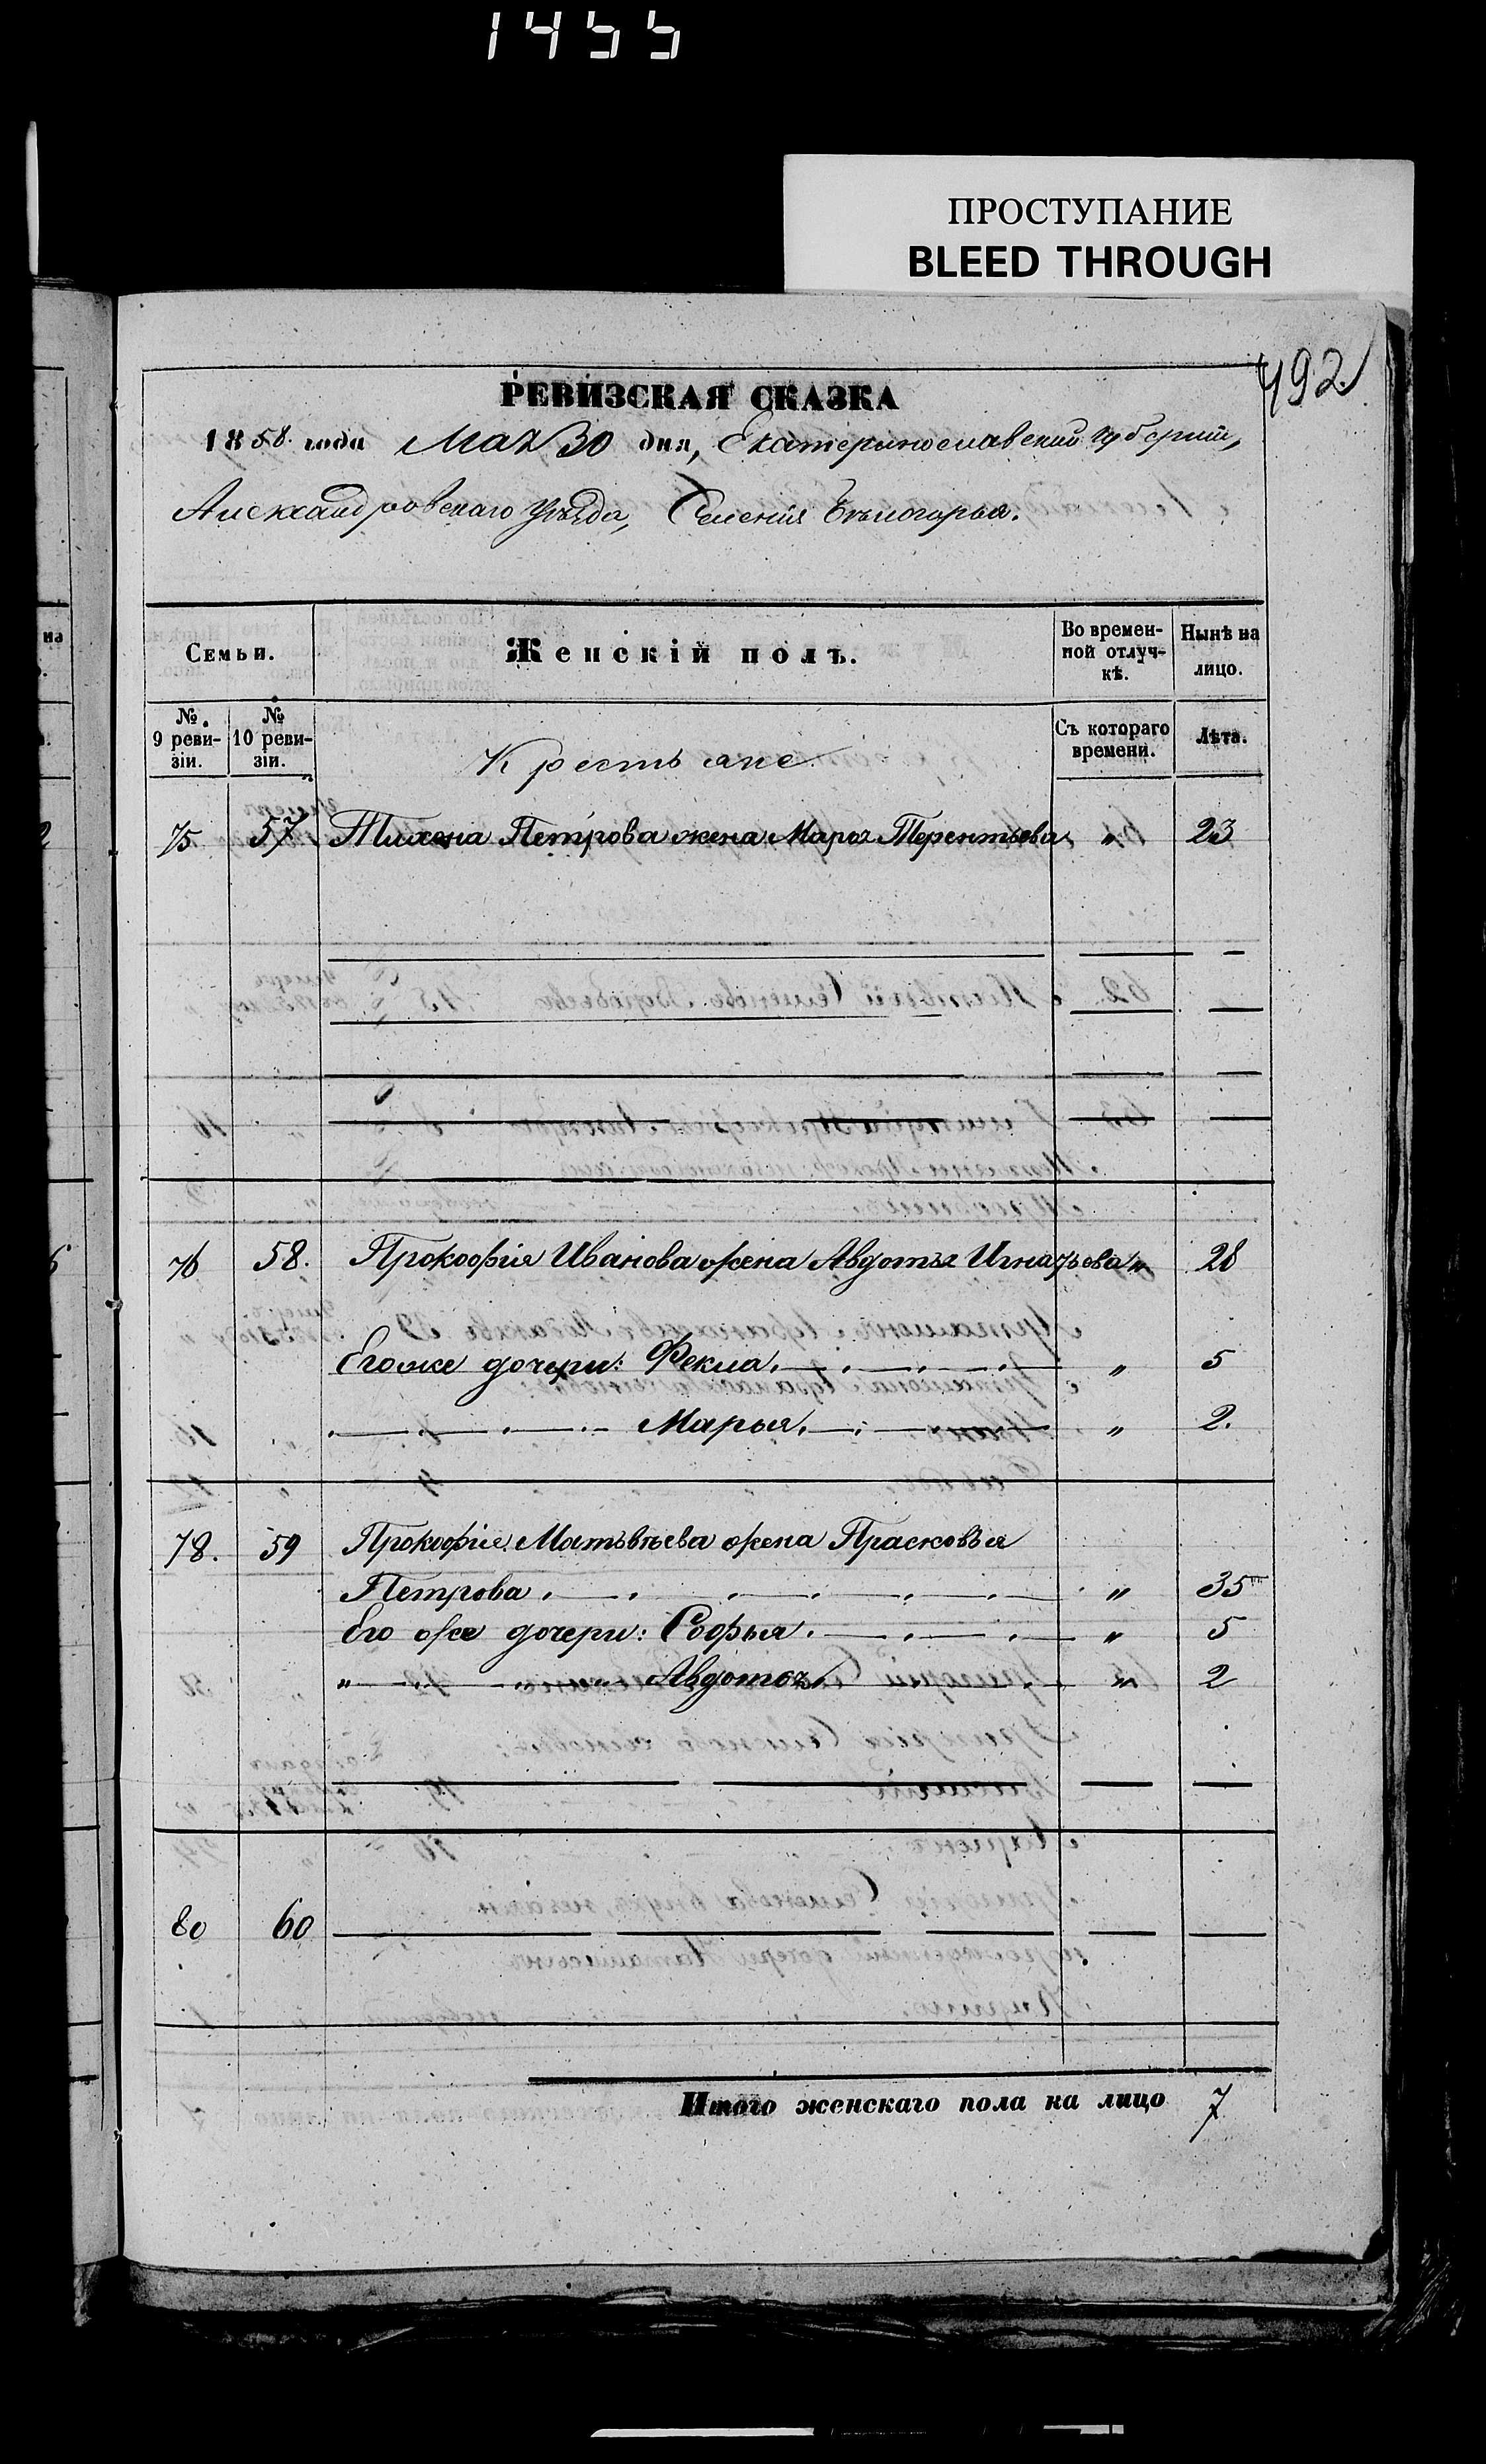 1455
ПРОСТУПАНИЕ
BLEED THROUGH
492
РЕВИЗСКАЯ СКАЗКА
1858. года Мая 30 дня, Екатеринославской губерніи,
Александровскаго уѣзда, Селенія Бѣлогорья.
Семьи. Женскій полъ. Во временной отлучкѣ. Нынѣ на лицо.
№ 9 ревизіи. № 10 ревизіи. Крестьяне. Съ котораго времени. Лѣта.
75 57 Тихона Петрова жена Марья Терентьева „ 23
76 58. Прокофія Иванова жена Авдотья Игнатьева „ 28
Егоже дочери: Фекла. „ 5
Марья. „ 2.
78. 59 Прокофія Матвѣева жена Прасковья
Петрова. „ 35
Его же дочери: Софья. „ 5
„ Авдотья „ 2
80 60
Итого женскаго пола на лицо 7